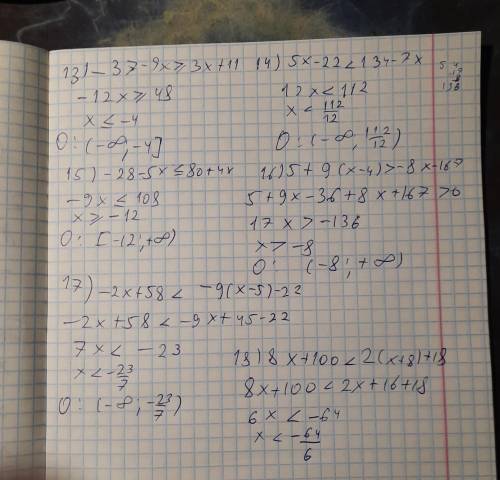 13) -37-9x≥3x+11
-12x≥48
x≤-4
О: (-∞;-4]
14) 5x-22<134-7x
12x<112
x<112/12
О: (-∞; 112/12)
15) -28-5x≤80+4x
-9x≤108
x≥-12
О: [-12;+∞)
16) 5+9(x-4)>-8x-167
5+9x-36+8x+167>0
17x>-136
x>-8
О: (-8;+∞)
17) -2x+58<-9(x-5)-22
-2x+58<-9x+45-22
7x<-23
x<-23/7
О: (-∞;-23/7)
18) 8x+100<2(x+8)+18
8x+100<2x+16+18
6x<-64
x<-64/6